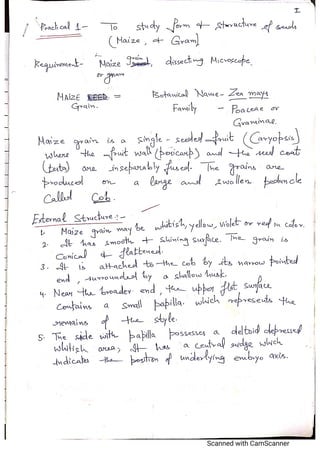 I
Practical 1- To study form & structure of seeds
(Maize, & Gram)
Requirement- Maize grain, dissecting Microscope,
or gram
MAIZE SEED = Botanical Name- Zea mays
Grain. Family - Poaceae or
Graminae
Maize grain is a single-seeded fruit (Caryopsis)
where the fruit wall (pericarp) and the seed coat
(testa) are inseparably fused. The grains are
produced on a large and swollen peduncle
called Cob.
External Structure:-
1. Maize grain may be whitish, yellow, violet or red in color.
2. It has smooth & shining surface. The grain is
Conical & flattened.
3. It is attached to the cob by its narrow pointed
end, surrounded by a shallow husk.
4. Near the broader end, the upper flat surface
contains a small papilla which represents the
remains of the style.
5. The side with papilla possesses a deltoid depressed
whitish area, It has a central ridge which
indicates the position of underlying embryo axis.
Scanned with CamScanner